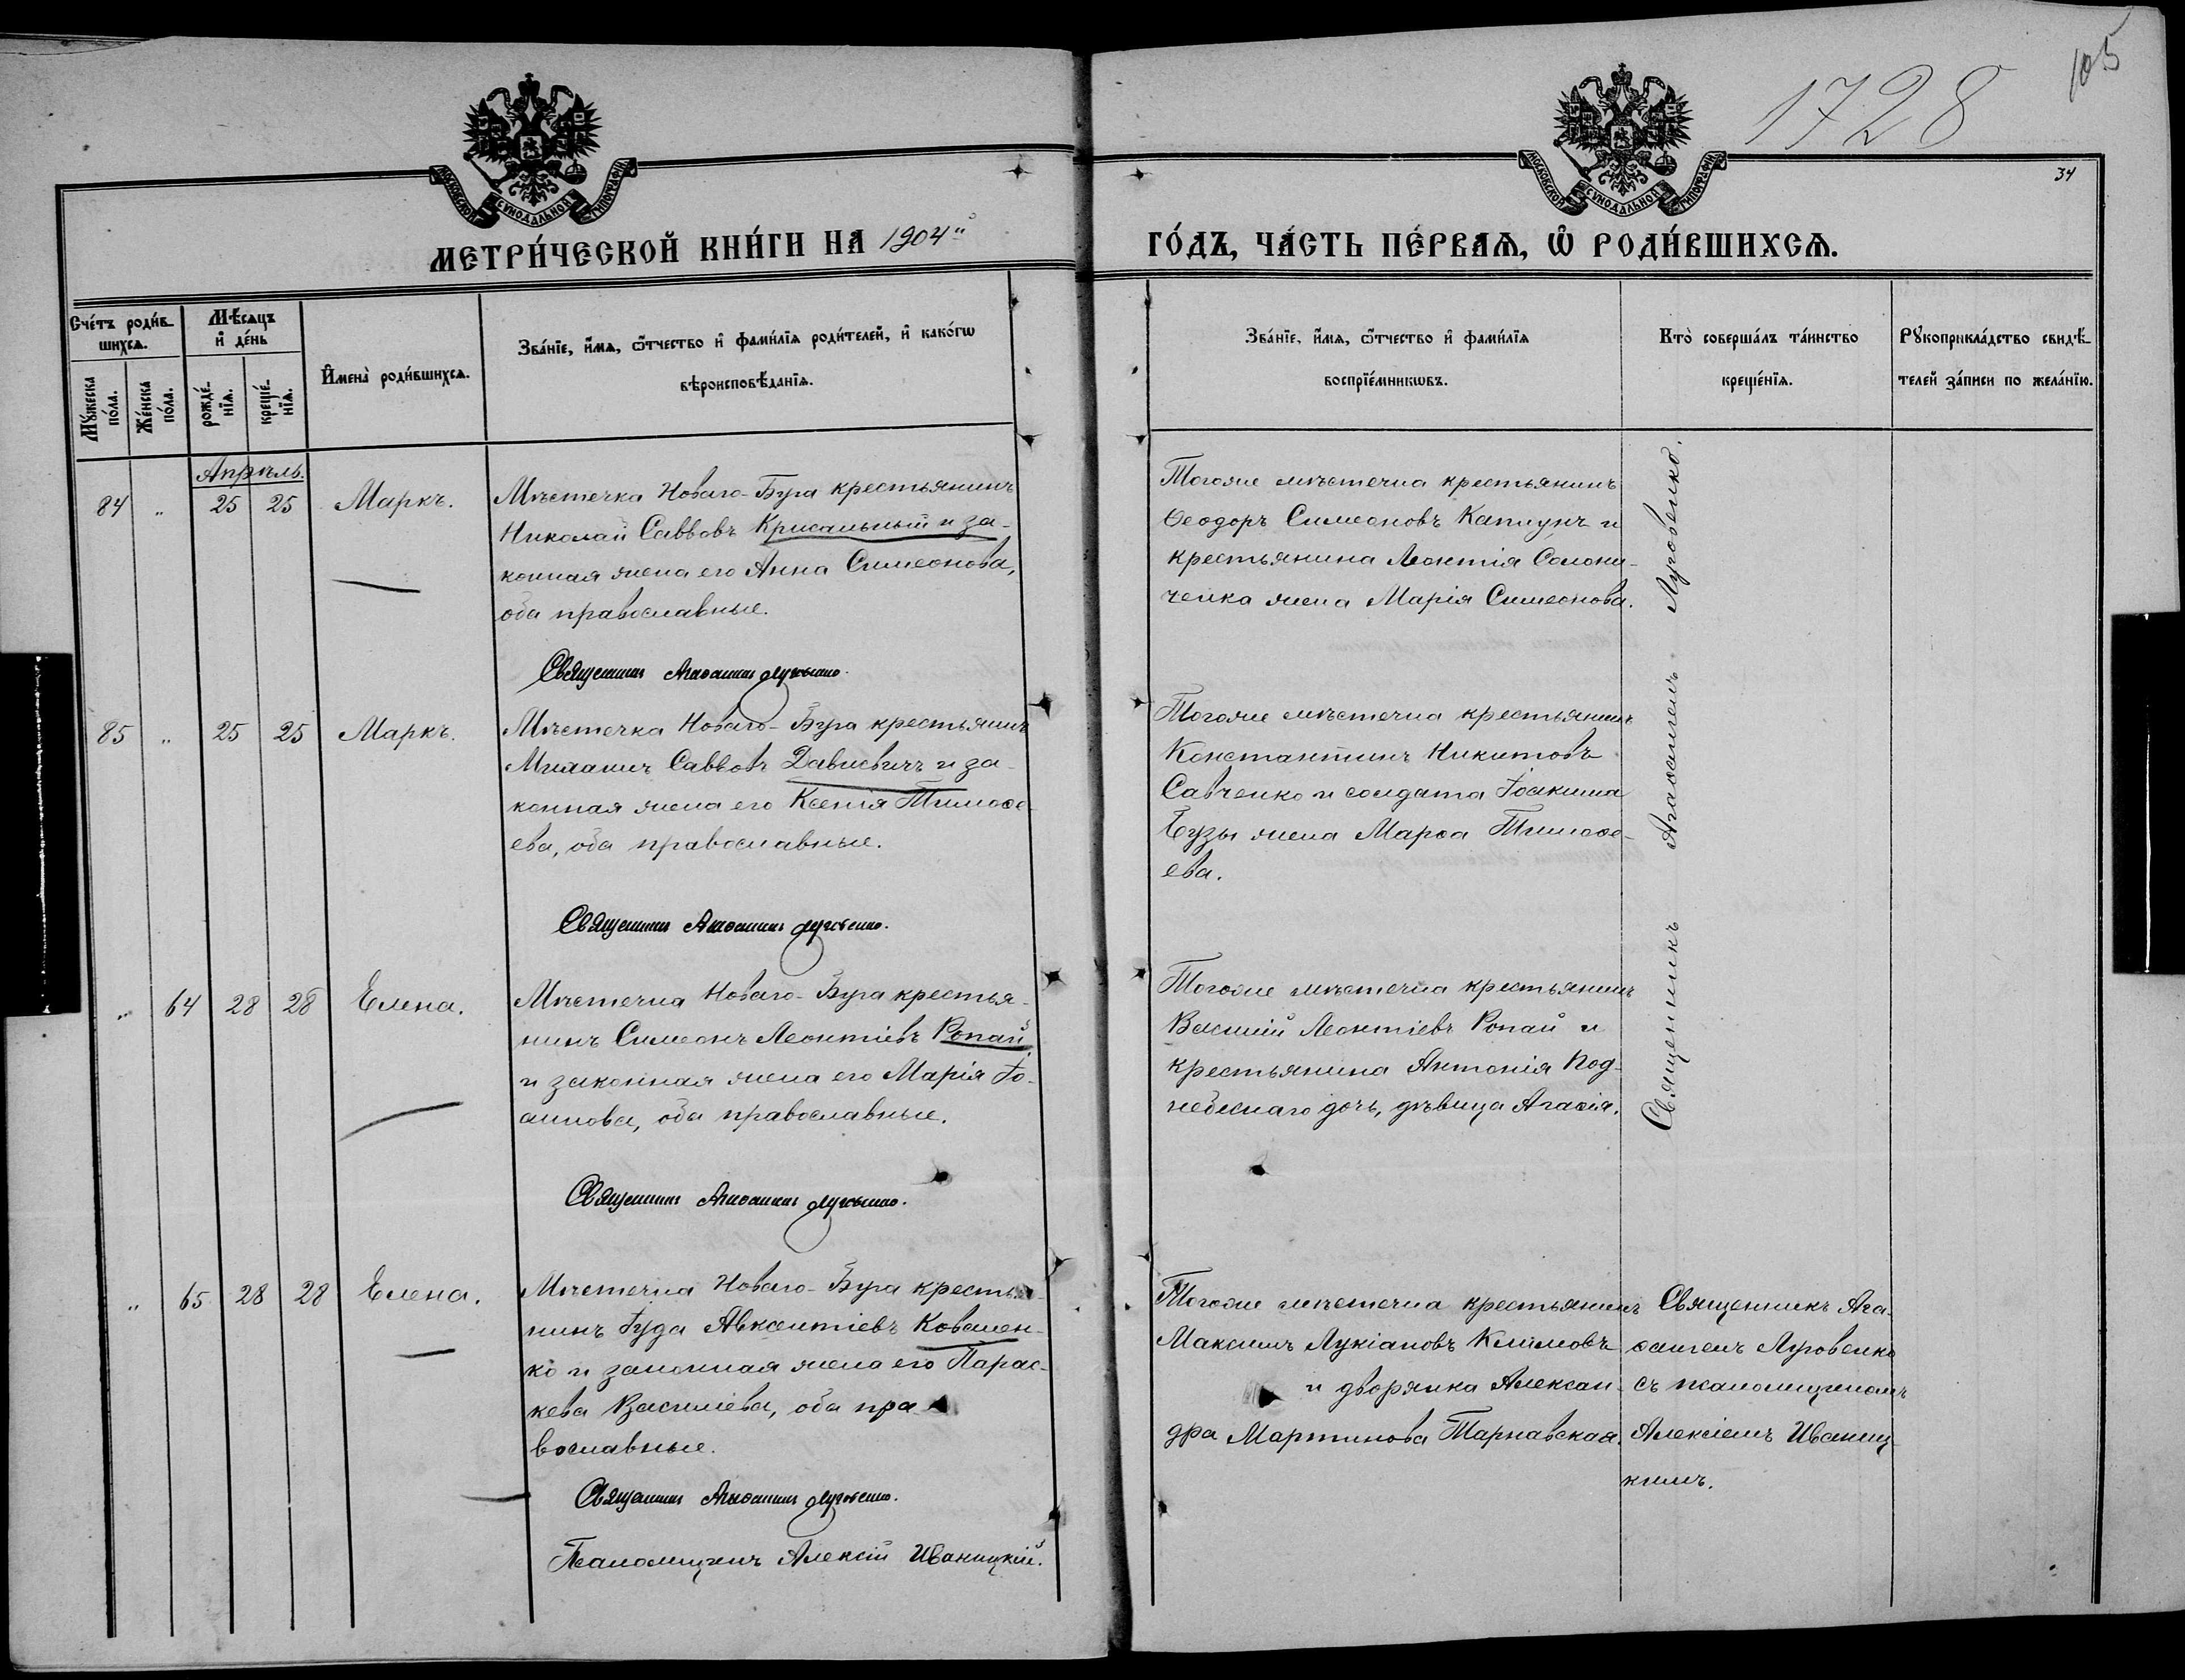 1728
105
34
МОСКОВСКОЙ СѴНОДАЛЬНОЙ ТИПОГРАФІИ
МОСКОВСКОЙ СѴНОДАЛЬНОЙ ТИПОГРАФІИ
МЕТРИ́ЧЕСКОЙ КНИ́ГИ НА 1904й
ГО́ДЪ, ЧА́СТЬ ПЕ́РВАѦ, Ѽ РОДИ́ВШИХСѦ.
Сче́тъ роди́в-
шихсѧ.
Мꙋ́жеска по́ла.
Же́нска по́ла.
Мѣ́сѧцъ
и҆ де́нь
рожде́-
нїѧ.
креще́-
нїѧ.
И҆мена̀ роди́вшихсѧ.
Зва́нїе, и҆́мѧ, ѻ҆́тчество и҆ фами́лїѧ роди́телей, и҆ како́гѡ
вѣроисповѣ́данїѧ.
Зва́нїе, и҆́мѧ, ѻ҆́тчество и҆ фами́лїѧ
воспрїе́мникѡвъ.
Кто̀ соверша́лъ та́инство
креще́нїѧ.
Рꙋкоприкла́дство свидѣ́-
телей за́писи по жела́нїю.
Апрѣль.
84 „ 25 25 Маркъ.
Мѣстечка Новаго-Буга крестьянинъ
Николай Саввовъ Крисальный и за-
конная жена его Анна Симеонова,
оба православные.
Священникъ Агаѳангелъ Луговенко.
Тогоже мѣстечка крестьянинъ
Ѳеодоръ Симеоновъ Капшунъ и
крестьянина Леонтія Солони-
ченка жена Марія Симеонова.
Священникъ Агаѳангелъ Луговенко.
85 „ 25 25 Маркъ.
Мѣстечка Новаго-Буга крестьянинъ
Михаилъ Саввовъ Давиевичъ и за-
конная жена его Ксенія Тимоѳе-
ева, оба православные.
Священникъ Агаѳангелъ Луговенко.
Тогоже мѣстечка крестьянинъ
Константинъ Никитовъ
Савченко и солдата Іоакима
Бузы жена Марѳа Тимоѳе-
ева.
„ 64 28 28 Елена.
Мѣстечка Новаго-Буга крестья-
нинъ Симеонъ Леонтіевъ Ропай
и законная жена его Марія Іо-
аннова, оба православные.
Священникъ Агаѳангелъ Луговенко.
Тогоже мѣстечка крестьянинъ
Василій Леонтіевъ Ропай и
крестьянина Антонія Под-
небеснаго дочь, дѣвица Агаѳія.
„ 65 28 28 Елена.
Мѣстечка Новаго-Буга крестья-
нинъ Іуда Авксентіевъ Ковален-
ко и законная жена его Парас-
кева Василіева, оба пра-
вославные.
Священникъ Агаѳангелъ Луговенко.
Псаломщикъ Алексій Иваницкій.
Тогоже мѣстечка крестьянинъ
Максимъ Лукіановъ Климовъ
и дворянка Алексан-
дра Мартинова Тарнавская.
Священникъ Ага-
ѳангелъ Луговенко
съ псаломщикомъ
Алексіемъ Иваниц-
кимъ.